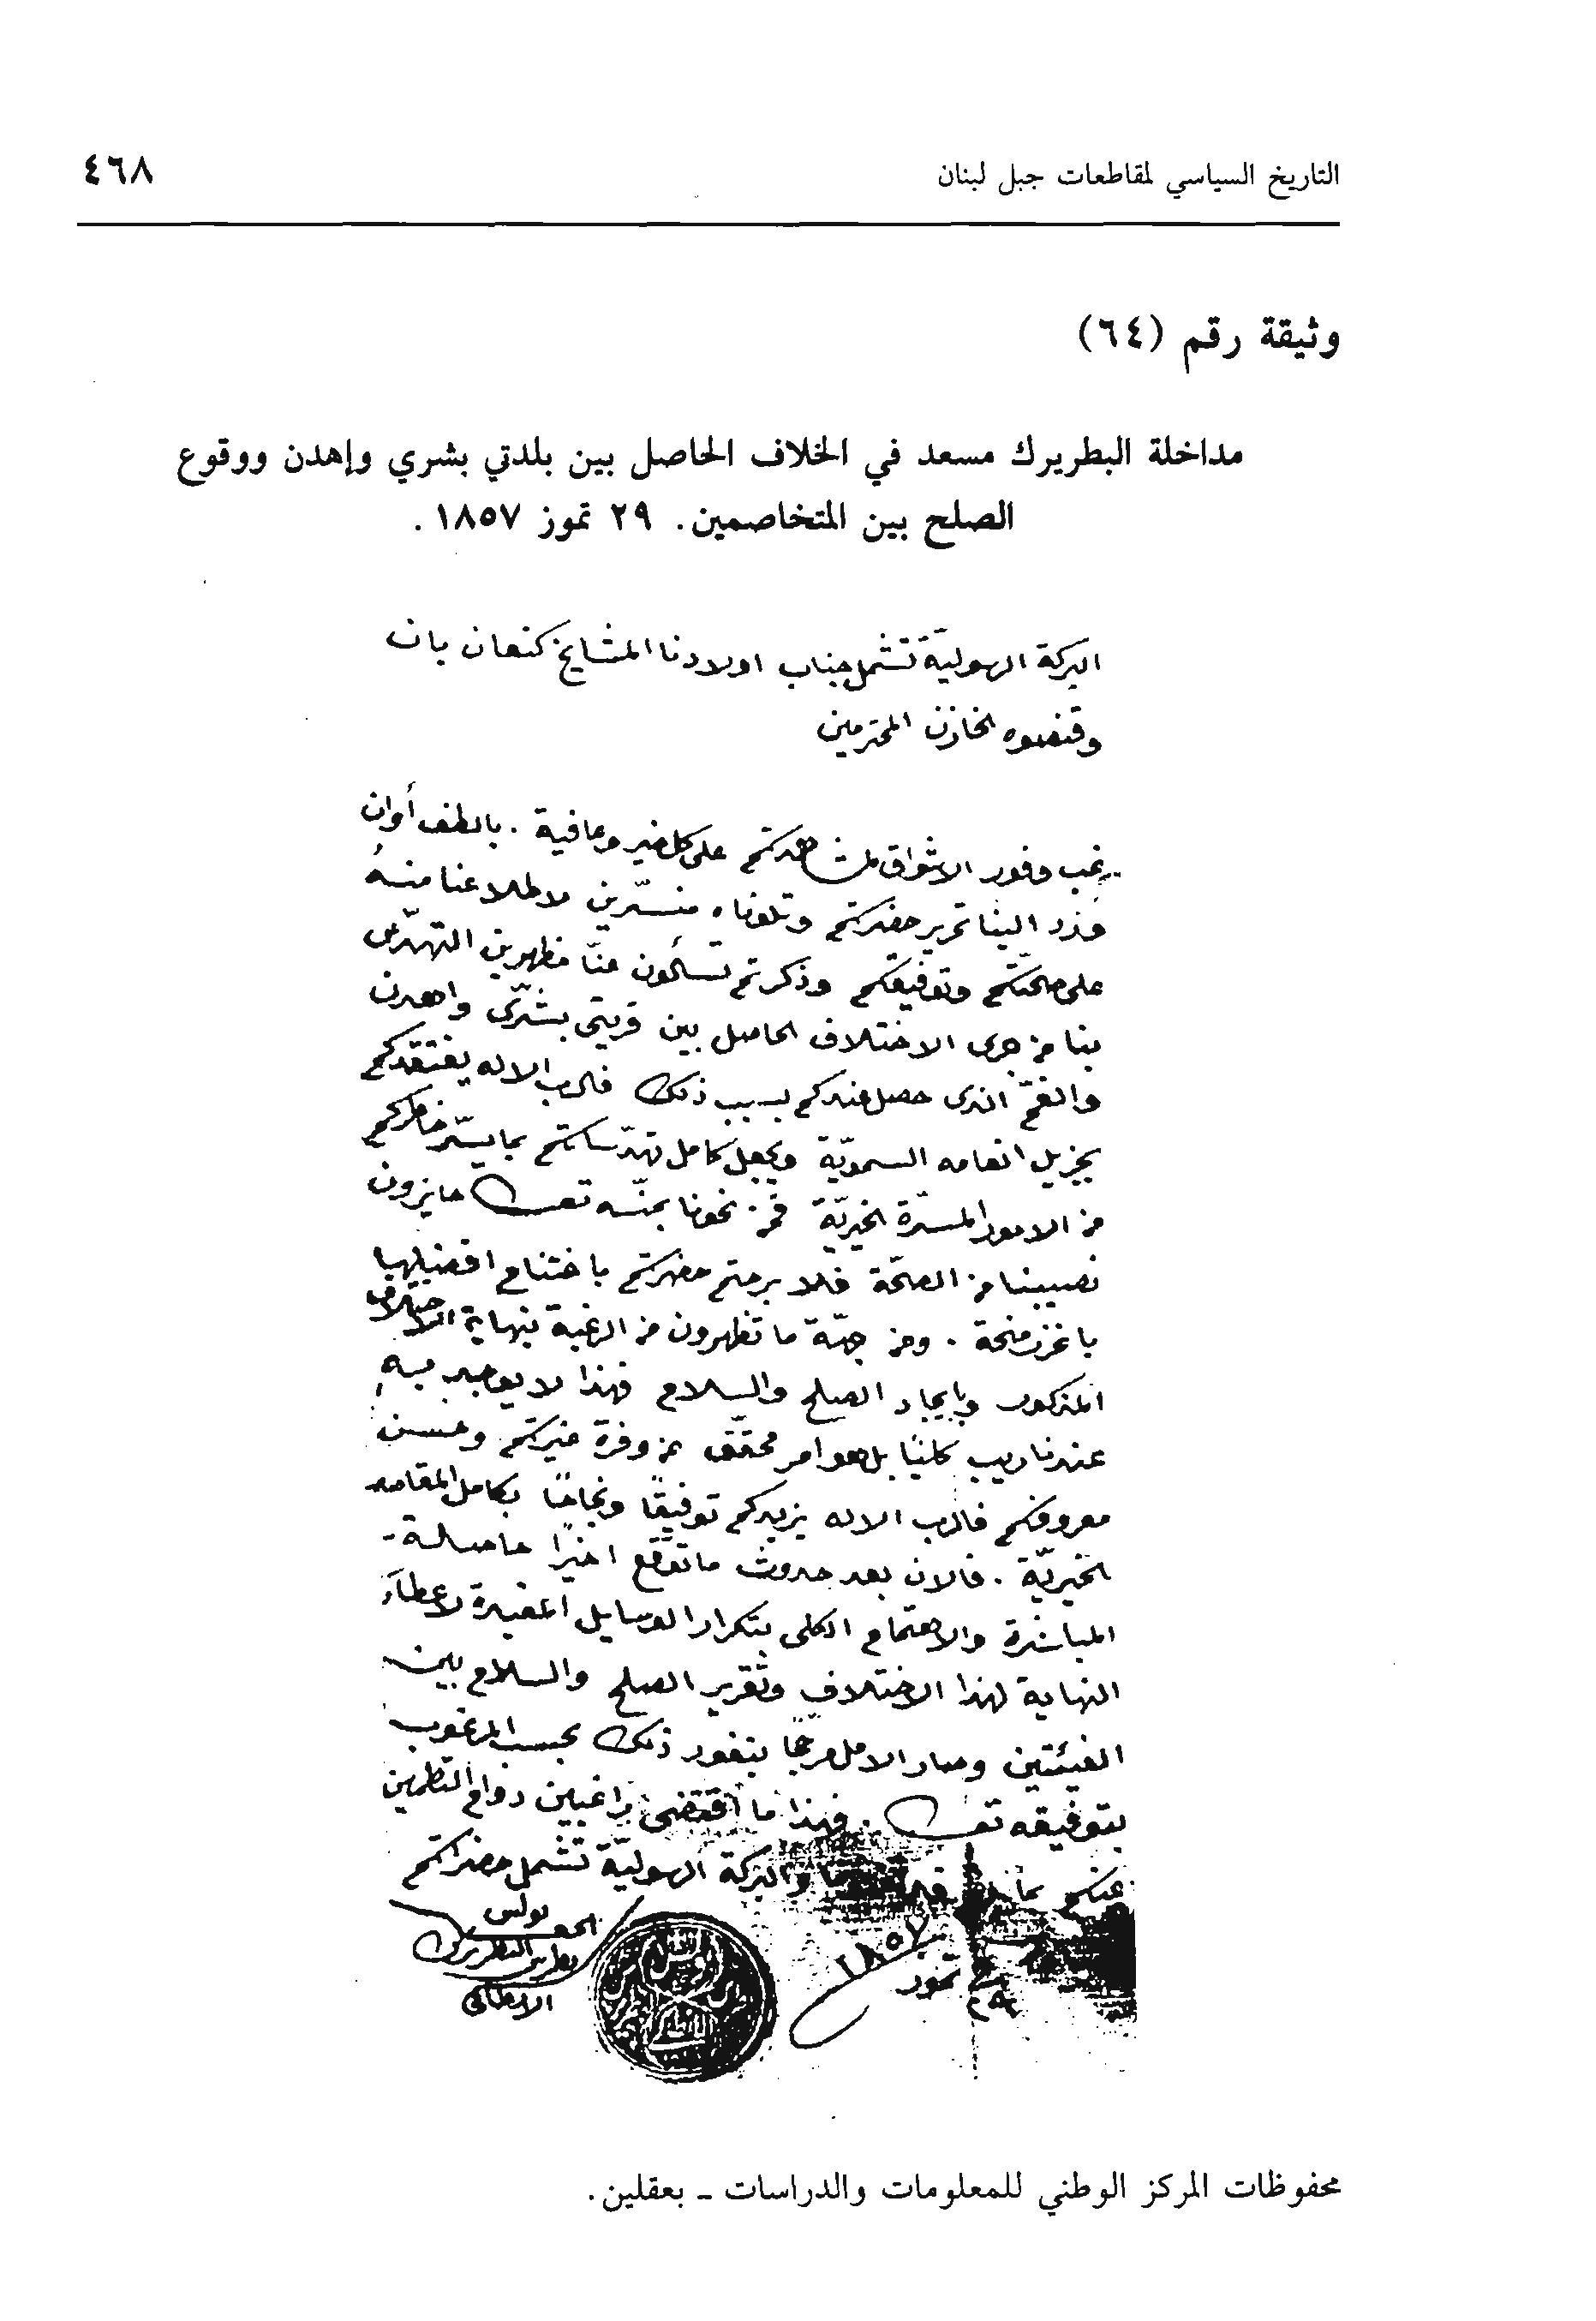 التاريخ السياسي لمقاطعات جبل لبنان ٤٦٨
وثيقة رقم (٦٤)
مداخلة البطريرك مسعد في الخلاف الحاصل بين بلدتي بشري وإهدن ووقوع
الصلح بين المتخاصمين. ٢٩ تموز ١٨٥٧.
البركة الرسوليّة تشمل جناب اولادنا المشايخ كنعان بان
وقنصوه الخازن المحترمين
غب وفور الاشواق لمشاهدتكم على كل خير وعافية. بالطف أوان
ورد الينا تحرير حضرتكم وتلوناه منسرّين لاطلاعنا منهُ
على صحّتكم وتوفيقكم وذكرتم تسألون عنّا مظهرين التهدّس
بنا من جرى الاختلاف الحاصل بين قريتي بشرّى واهدن
والغمّ الذى حصل عندكم بسبب ذلك فالرب الاله يفتقدكم
بجزيل انعامه السمويّة ويجعل كامل تهدّساتكم بما يسّر خاطركم
من الامور المسرّة الخيريّة فمن نحونا بمنّه تعـ حايزون
نصيبنا من الصحّة فلا برحتم حضرتكم باغتنام افضيلها
باغزر منحة. ومن جهّة ما تظهرون من الرغبة بنهاية الاختلاف
المذكور وبايجاد الصلح والسلام فهذا لا يوجد بهِ
عندنا ريب كليًا بل هو امر محقّق من وفرة غيرتكم وحسن
معروفكم فالرب الاله يزيدكم توفيقًا ونجاحًا بكامل المقاصد
الخيريّة. فالان بعد حدوث ما توقّع اخيرًا حاصلة
المباشرة والاهتمام الكلى بتكرار الوسايل المفيدة لاعطآء
النهاية لهذا الاختلاف وتقرير الصلح والسلام بين
الفيئتين وصار الامل مرجحًا بنفود ذلك بحسب المرغوب
بتوفيقه تعـ. فهذا ما اقتضى راغبين دوام التطمين
عنكم بما والبركة الرسوليّة تشمل حضراتكم
٢٩ تموز ١٨٥٧
بولس
بطرس البطريرك
الانطاكي
محفوظات المركز الوطني للمعلومات والدراسات ـ بعقلين.